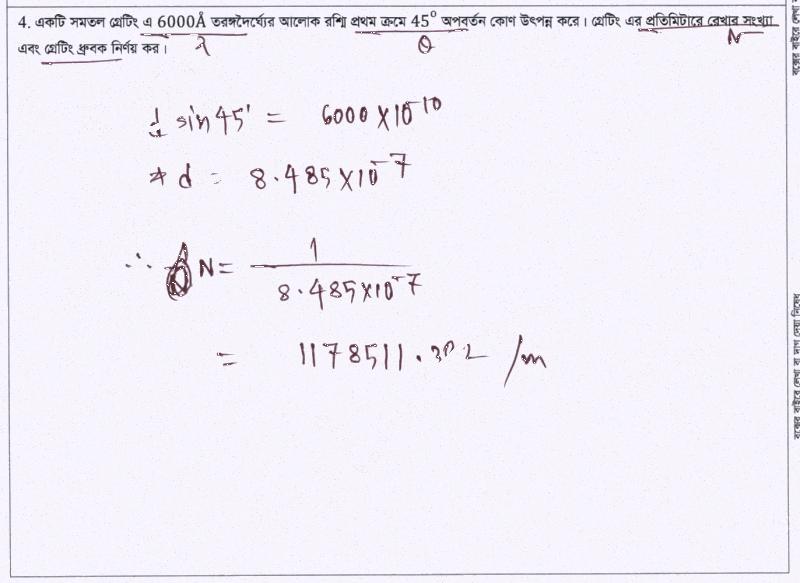 4. একটি সমতল গ্রেটিং এ 6000Å তরঙ্গদৈর্ঘ্যের আলোক রশ্মি প্রথম ক্রমে 45° অপবর্তন কোণ উৎপন্ন করে। গ্রেটিং এর প্রতিমিটারে রেখার সংখ্যা
এবং গ্রেটিং ধ্রুবক নির্ণয় কর।
λ θ N
d sin 45° = 6000 × 10⁻¹⁰
d = 8.485 × 10⁻⁷
∴ N = 1
8.485 × 10⁻⁷
= 1178511.302 /m